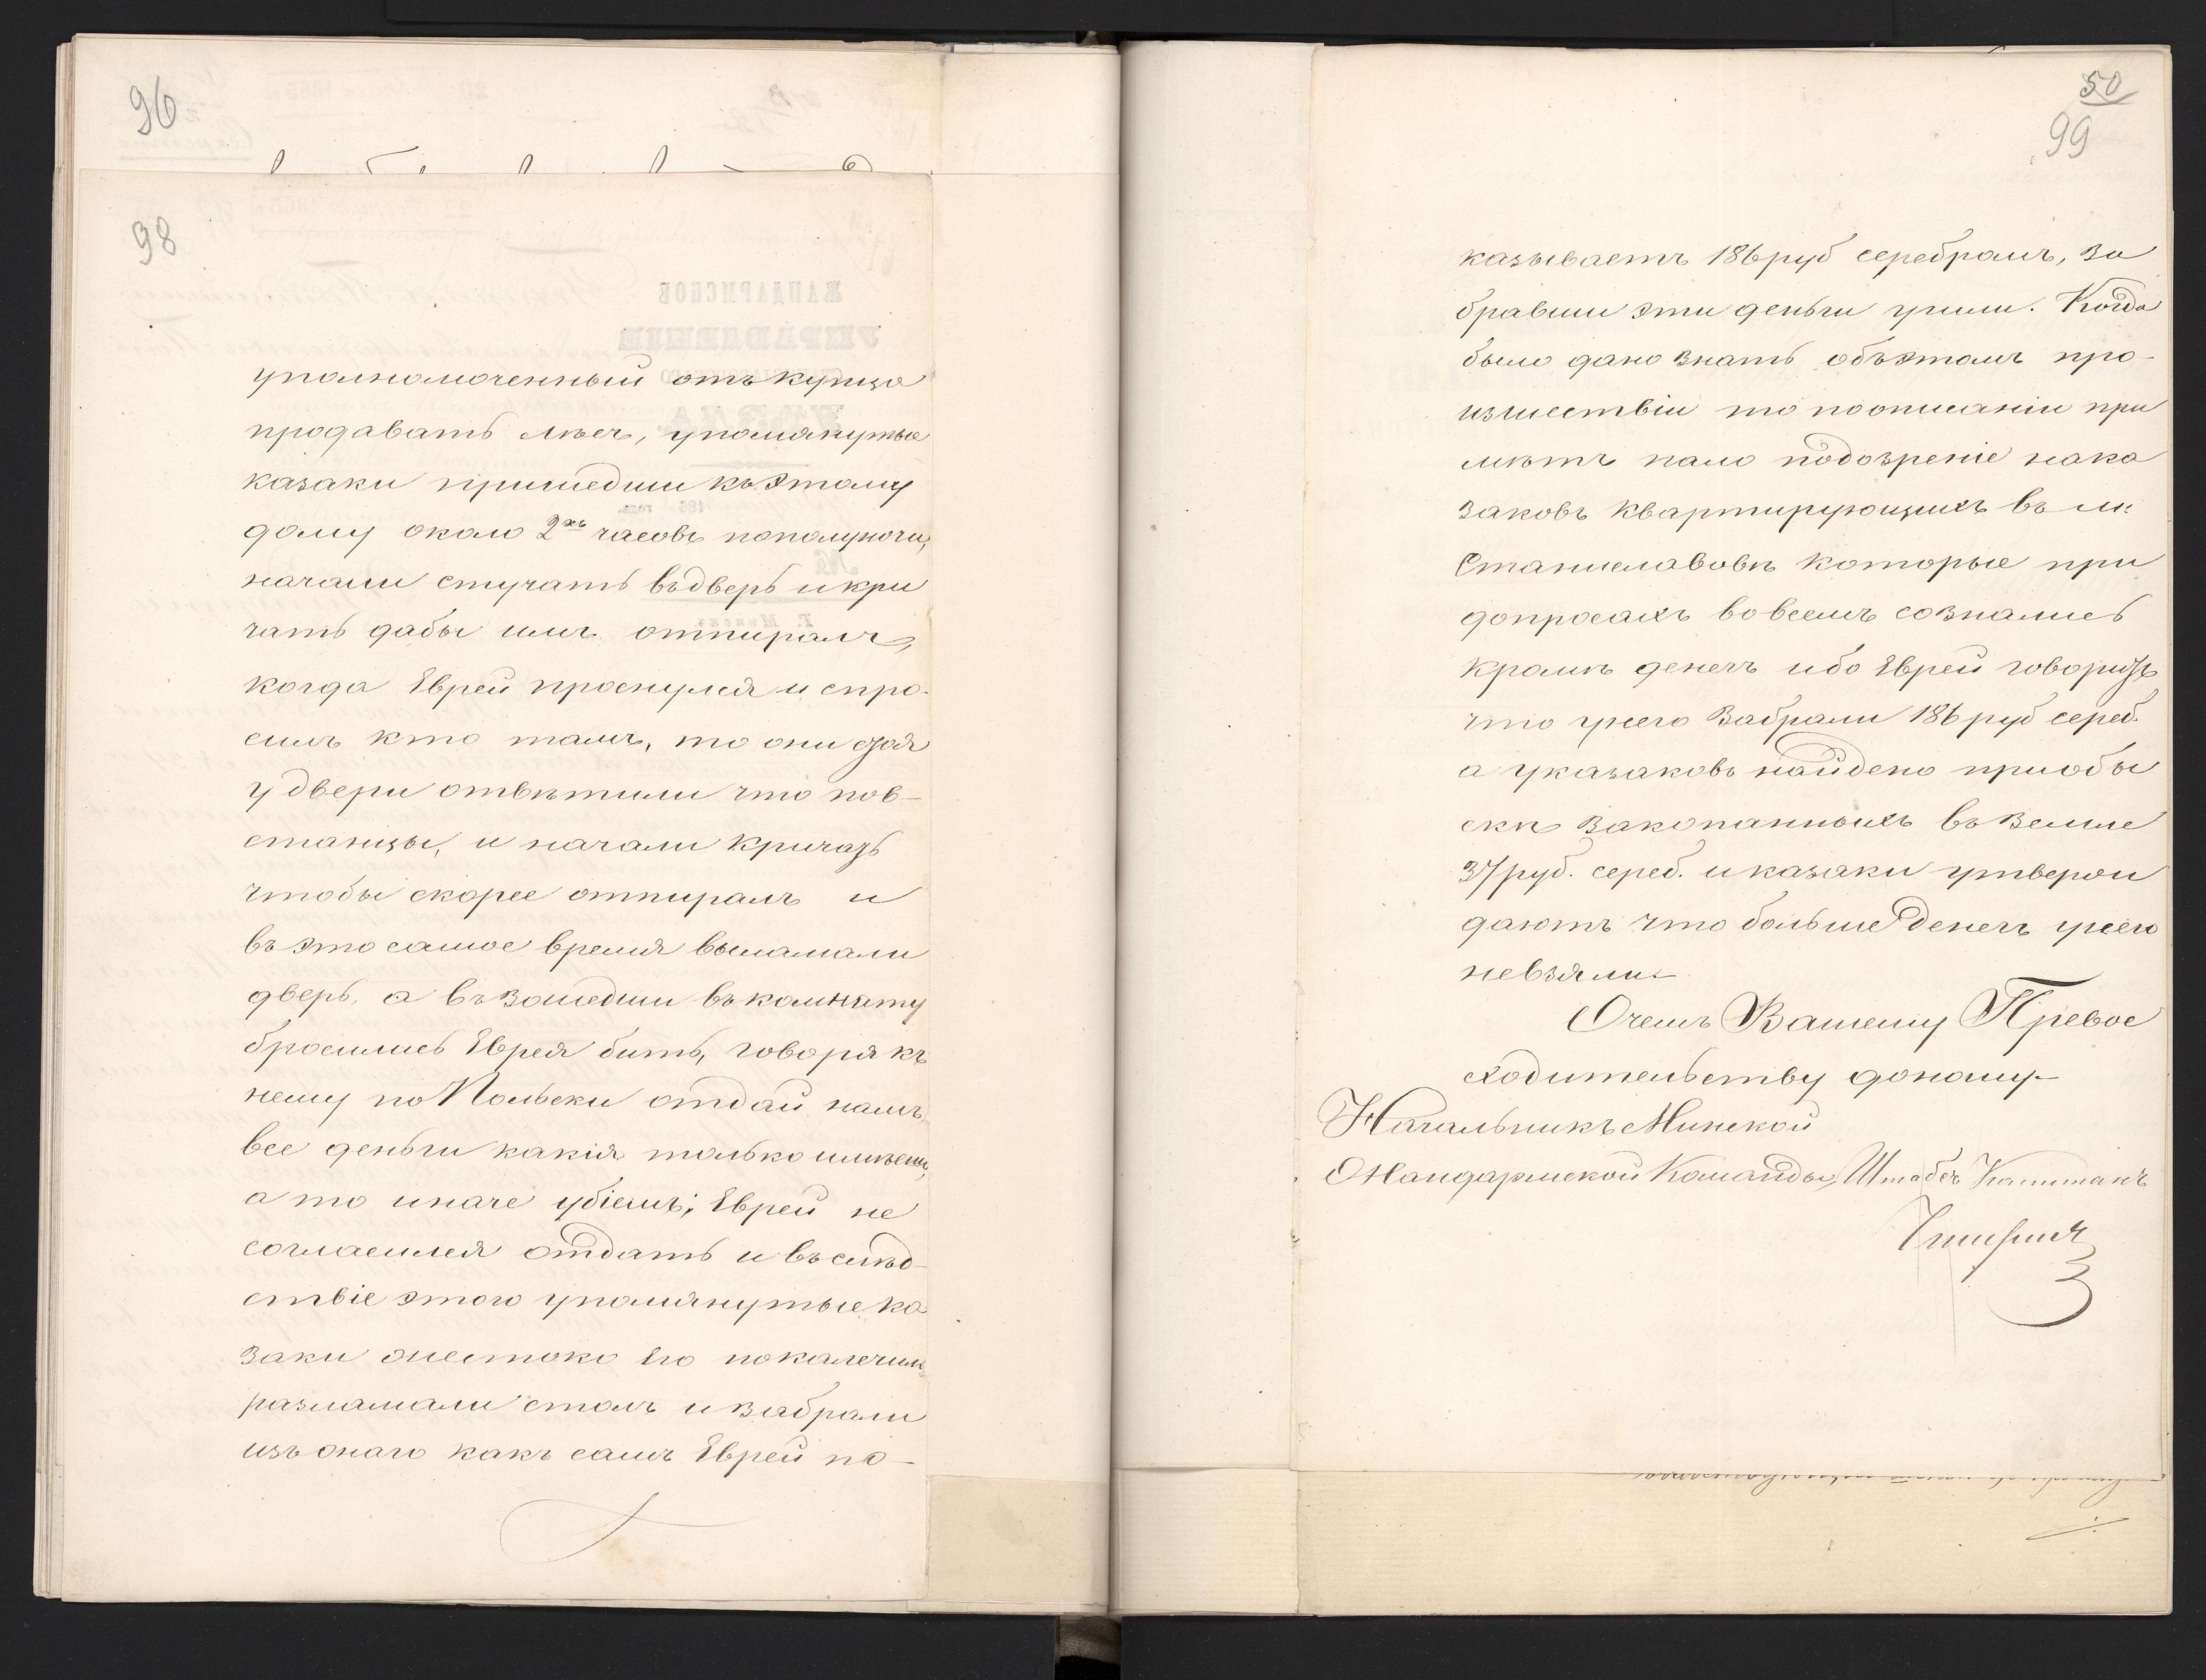 96
98
уполномоченный отъ купца
продавать лѣсъ, упомянутые
казаки пришедши къ этому
дому около 2хъ часовъ пополуночи,
начали стучать въ дверь и кри
чать дабы имъ отпиралъ,
когда Еврей проснулся и спро-
силъ кто тамъ, то они стоя
у двери отвѣтили что пов-
станцы, и начали кричать
чтобы скорее отпиралъ и
въ это самое время выламали
дверь, а въ зошедши въ комнату
бросились Еврея бить, говоря къ
нему по Польски отдай намъ
все деньги какія только имѣешь,
а то иначе убіемъ; Еврей не
согласился отдать и въ слѣд-
ствіе этого упомянутые ка
заки жестоко его покалечили
разламали столъ и забрали
изъ онаго какъ самъ Еврей по-
50
99
казываетъ 186 руб серебромъ, за
бравши эти деньги ушли. Когда
было дано знать объ этомъ про-
изшествіи то по описаніи при
мѣтъ пало подозреніе на ка
заковъ квартирующихъ въ м:
Станиславовѣ которые при
допросахъ во всемъ сознались
кромѣ денегъ ибо Еврей говоритъ
что у него забрали 186 руб сереб.
а у казаковъ найдено при обы
скѣ закопанныхъ въ земле
37 руб. сереб. и казаки утверж
даютъ что больше денегъ у него
не взяли.
О чемъ Вашему Превос
ходительству доношу
Начальникъ Минской
Жандармской Команды, Штабсъ Капитанъ